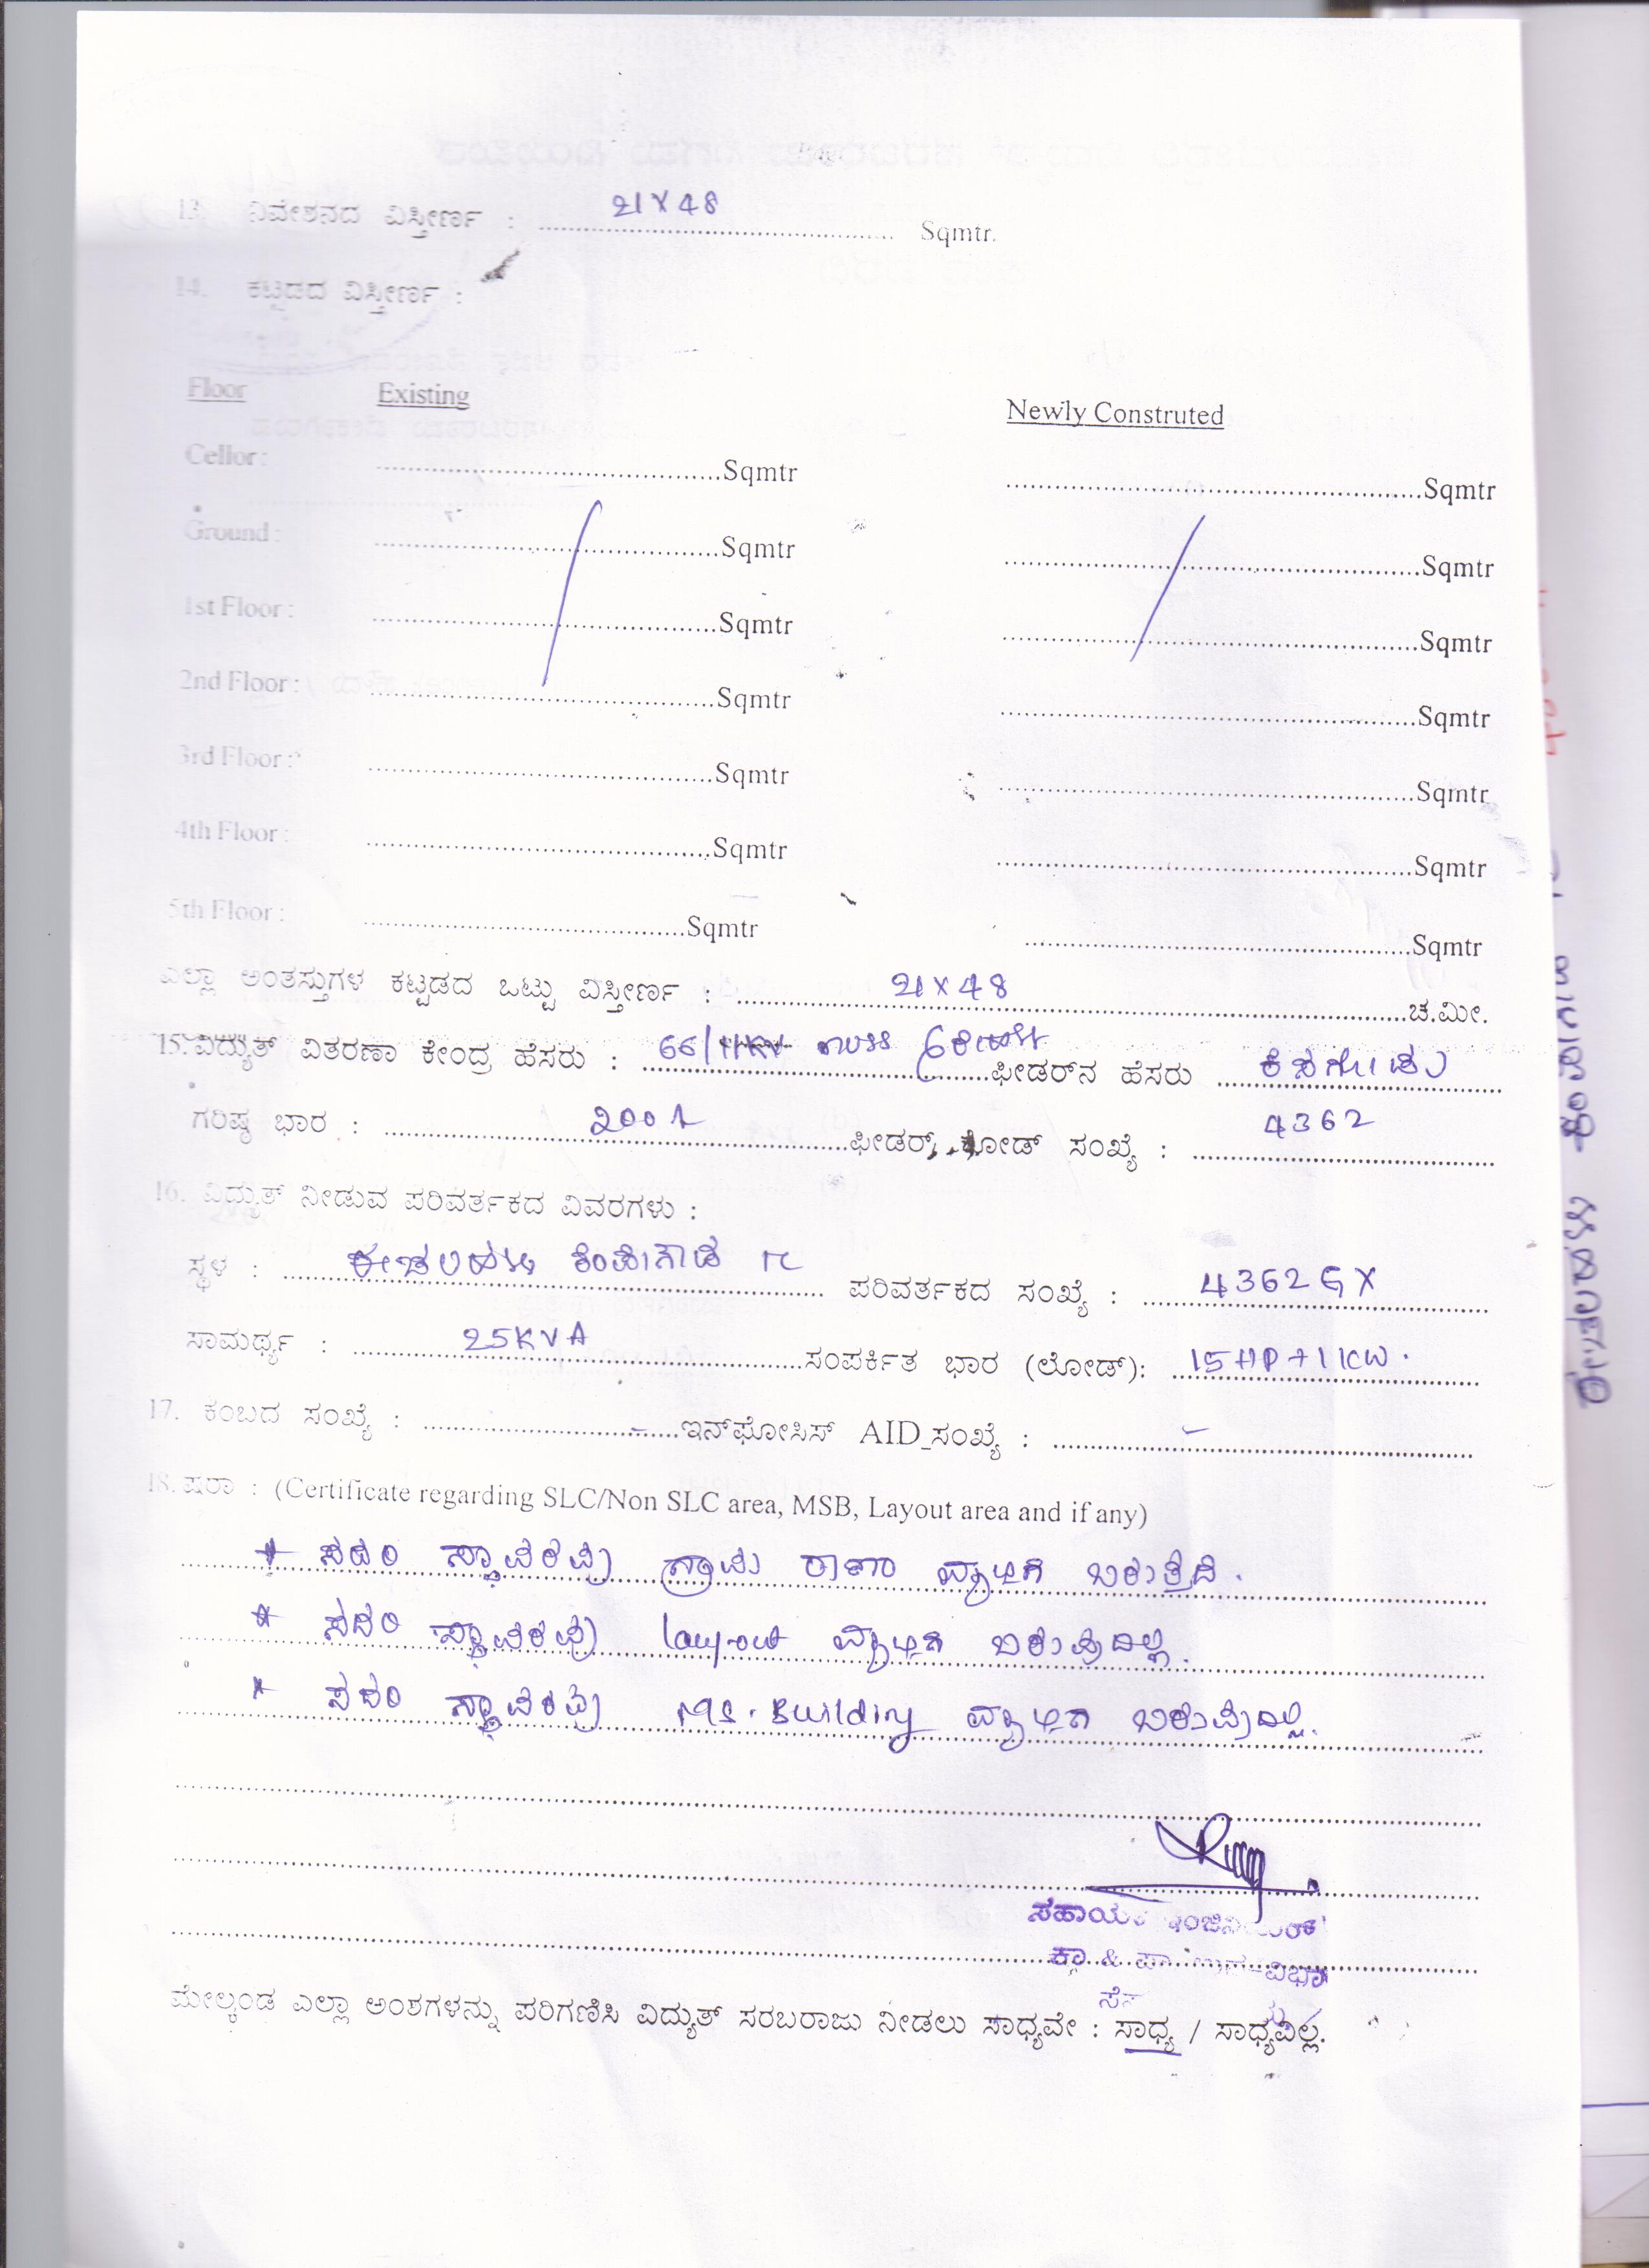 13. ನಿವೇಶನದ ವಿಸ್ತೀರ್ಣ : 21 X 48 Sqmtr.
14. ಕಟ್ಟಡದ ವಿಸ್ತೀರ್ಣ :
Floor Existing Newly Construted
Cellor : Sqmtr Sqmtr
Ground : Sqmtr Sqmtr
1st Floor : Sqmtr Sqmtr
2nd Floor : Sqmtr Sqmtr
3rd Floor : Sqmtr Sqmtr
4th Floor : Sqmtr Sqmtr
5th Floor : Sqmtr Sqmtr
ಎಲ್ಲಾ ಅಂತಸ್ತುಗಳ ಕಟ್ಟಡದ ಒಟ್ಟು ವಿಸ್ತೀರ್ಣ : 21 X 48 ಚ.ಮೀ.
15. ವಿದ್ಯುತ್ ವಿತರಣಾ ಕೇಂದ್ರ ಹೆಸರು : 66/11KV ಫೀಡರ್‌ನ ಹೆಸರು
ಗರಿಷ್ಠ ಭಾರ : 200 A ಫೀಡರ್ ಕೋಡ್ ಸಂಖ್ಯೆ : 4362
16. ವಿದ್ಯುತ್ ನೀಡುವ ಪರಿವರ್ತಕದ ವಿವರಗಳು :
ಸ್ಥಳ : ಕೆಂಪೇಗೌಡ TC ಪರಿವರ್ತಕದ ಸಂಖ್ಯೆ : 4362GX
ಸಾಮರ್ಥ್ಯ : 25KVA ಸಂಪರ್ಕಿತ ಭಾರ (ಲೋಡ್): 15 HP + 1 KW.
17. ಕಂಬದ ಸಂಖ್ಯೆ : – ಇನ್‌ಫೋಸಿಸ್ AID_ಸಂಖ್ಯೆ : –
18. ಷರಾ : (Certificate regarding SLC/Non SLC area, MSB, Layout area and if any)
* ಸದರಿ ಸ್ಥಾವರವು ಗ್ರಾಮ ಠಾಣಾ ವ್ಯಾಪ್ತಿಗೆ ಬರುತ್ತದೆ.
* ಸದರಿ ಸ್ಥಾವರವು layout ವ್ಯಾಪ್ತಿಗೆ ಬರುವುದಿಲ್ಲ.
* ಸದರಿ ಸ್ಥಾವರವು MS. Building ವ್ಯಾಪ್ತಿಗೆ ಬರುವುದಿಲ್ಲ.
ಸಹಾಯಕ ಇಂಜಿನಿಯರ್
ಮೇಲ್ಕಂಡ ಎಲ್ಲಾ ಅಂಶಗಳನ್ನು ಪರಿಗಣಿಸಿ ವಿದ್ಯುತ್ ಸರಬರಾಜು ನೀಡಲು ಸಾಧ್ಯವೇ : ಸಾಧ್ಯ / ಸಾಧ್ಯವಿಲ್ಲ.